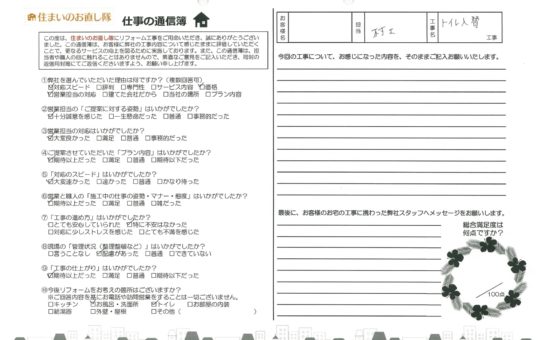 住まいのお直し隊 仕事の通信簿
この度は、住まいのお直し隊にリフォーム工事をご用命いただき、誠にありがとうござい
ました。この通信簿は、お客様に弊社の工事内容について感じたままに評価していただく
ことで、更なるサービスの向上を図るために実施しております。また、この通信簿は、担
当者や職人の目に触れることはありませんので、率直なご意見をご記入いただき、同封の
返信用封筒にてご返信くださいますよう、お願い申し上げます。
①弊社を選んでいただいた理由は何ですか?(複数回答可)
対応スピード 評判 専門性 サービス内容 価格
営業担当の対応 建てた会社だから 当社の場所 プラン内容
②営業担当の「ご提案に対する姿勢」はいかがでしたか?
十分誠意を感じた 一生懸命だった 普通 事務的だった
③営業担当の対応はいかがでしたか?
大変良かった 満足 普通 事務的だった
④ご提案させていただいた「プラン内容」はいかがでしたか?
期待以上だった 満足 普通 期待以下だった
⑤「対応のスピード」はいかがでしたか?
大変速かった 速い 普通 かなり待った
⑥営業と職人の「施工中の仕事の姿勢・マナー・態度」はいかがでしたか?
期待以上だった 満足 普通 雑だった
⑦「工事の進め方」はいかがでしたか?
とても安心していられた 特に不安はなかった
対応に少しストレスを感じた とても不満を感じた
⑧現場の「管理状況(整理整頓など)」はいかがでしたか?
言うことなし 配慮があった 普通 できていない
⑨「工事の仕上がり」はいかがでしたか?
期待以上だった 満足 普通 期待以下だった
⑩今後リフォームをお考えの箇所はございますか?
※ご回答内容を基にお電話や訪問営業をすることは一切ございません。
キッチン お風呂・洗面所 トイレ お部屋の内装
給湯器 外壁・屋根 その他(
お客様名
担当
工事名 トイレ入替
工事
今回の工事について、お感じになった内容を、そのままご記入お願いいたします。
最後に、お客様のお宅の工事に携わった弊社スタッフへメッセージをお願いします。
総合満足度は
何点ですか?
/100点